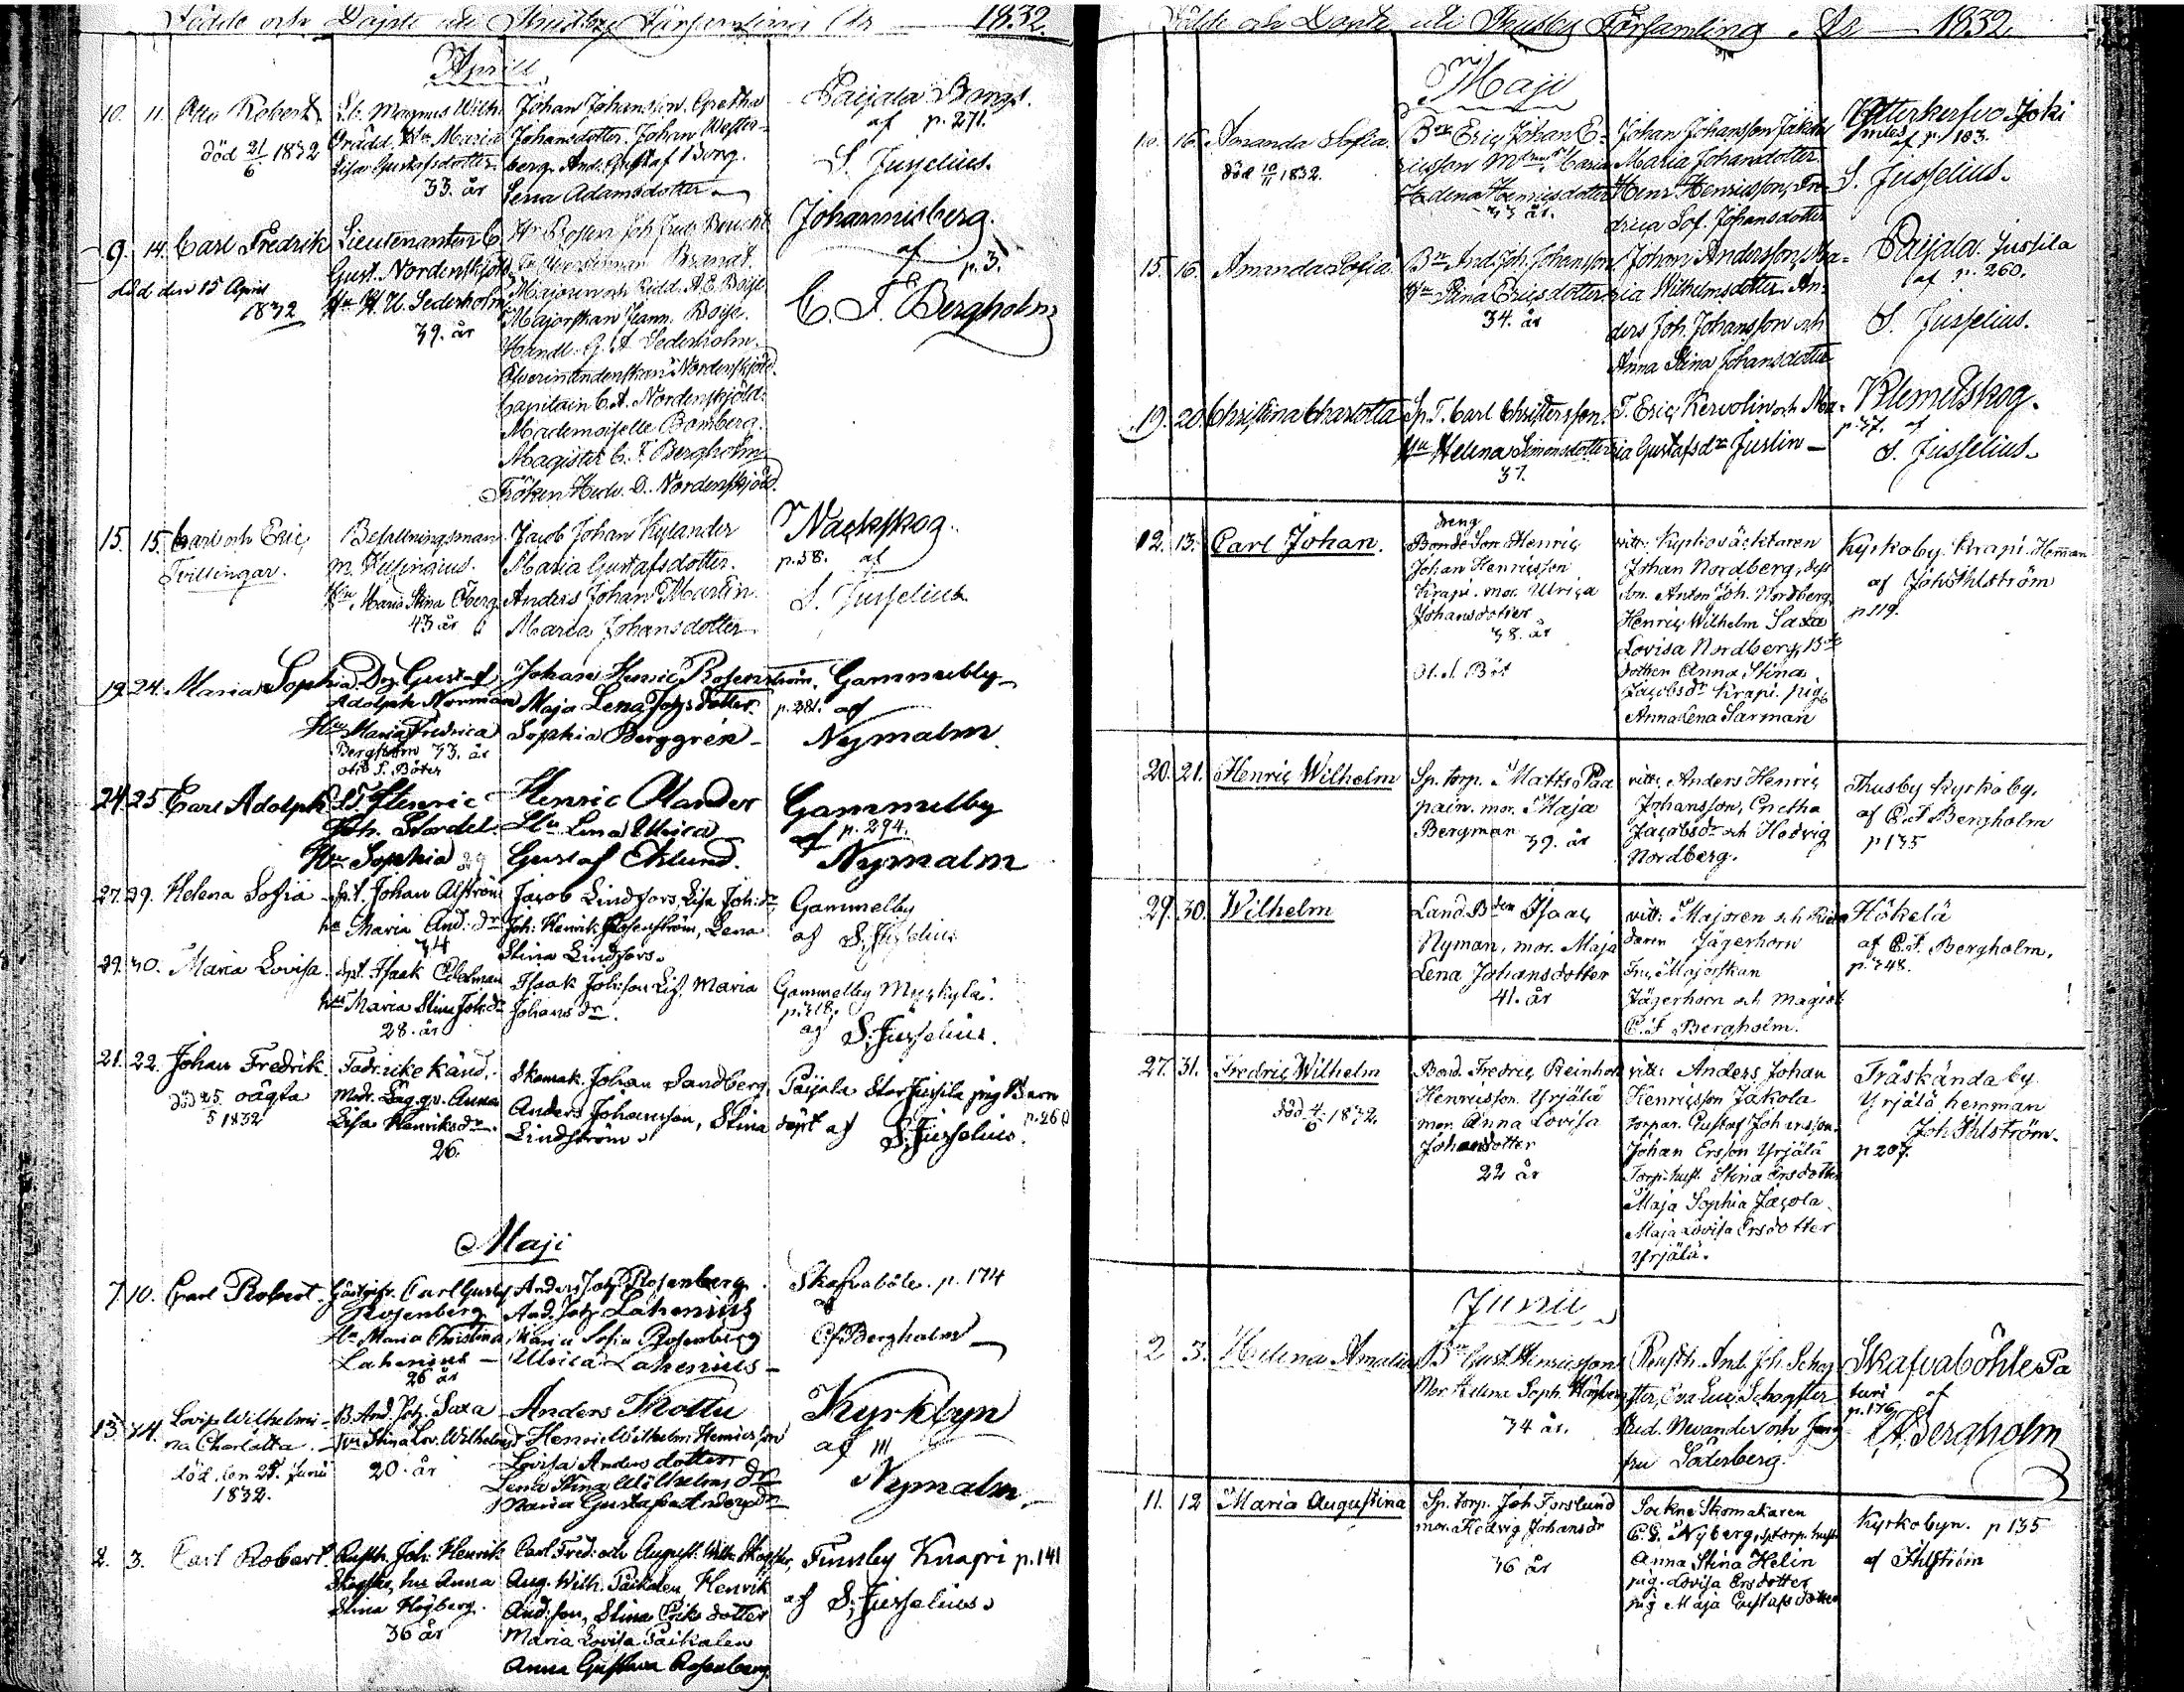 Födde och Döpte uti Thusby Församling År 1832.
Aprill
10. 11. Otto Robert
död 21/6 1832
Lb. Magnus Wilh.
Grädd. Hu Maria
Lisa Gustafsdotter.
33. år
Johan Johansson. Gretha
Johansdotter. Johan Wester-
berg. And. Gustaf Borg.
Lena Adamsdotter
Paijala Borgs.
af p. 271.
S. Jusselius.
9. 14. Carl Fredrik
död den 15 April
1832
Lieutenanten C.
Gust. Nordenskjöld
Hu H. U. Sederholm
39. år
Majoren och Ridd. A. E. Boije
Majorskan Joann. Boije.
Handl. G. A. Sederholm.
Nordenskjöld.
Capitain C. A. Nordenskjöld.
Mademoiselle Bomberg.
Magister C. F. Bergholm
Fröken Hedv. D. Nordenskjöld.
Johannisberg.
af p. 3.
C. F. Bergholm
15. 15. Carl och Eric,
Tvillingar.
Befallningsman
M.
Hu Maria Stina Öberg
43 år
Jacob Johan Kylander
Maria Gustafsdotter.
Anders Johan Martin
Maria Johansdotter
Nackskog.
p. 58. af
S. Jusselius
19. 24. Maria Sophia
Drg. Gustaf
Adolph Norrman
Hu Maria Fredrica
Bergström 33. år
Johan Henric Rosenström,
Maja Lena Johs dotter.
Sophia Berggrén
Gammelby
p. 281. af
Nymalm
24. 25 Carl Adolph
Henric
Joh. Stordel.
Hu Sophia 29
Henric Olander
Hu Lena Ulrica
Gustaf Eklund.
Gammelby
af p. 294.
Nymalm
27. 29. Helena Sofia
Spt. Johan Alström
hu Maria And: dr
34
Jacob Lindfors, Lisa Joh: dr
Joh. Henrik Rosenström, Lena
Stina Lindfors.
Gammelby
af S. Jusselius
29. 30. Maria Lovisa.
Spt. Isaak Edelman
hu Maria Stina Joh. dr
28. år
Isaak Johsson Maria
Johans dr.
Gammelby Myrkylä.
p. 318.
af S. Jusselius.
21. 22. Johan Fredrik.
död 25/5 1832 oägta
Fadr. icke känd.
Modr. Anna
Lisa Henriksdr.
26.
Skomak. Johan Sandberg,
Anders Johansson, Stina
Lindström.
Paijala Stor Jussila pig Barn
p. 260
döpt af S. Jusselius.
Maji
7 10. Carl Robert.
Gästgifv. Carl Gustaf
Rosenberg
Hu Maria Christina
Lahenius
26 år
Anders Joh. Rosenberg
And. Joh. Lahenius
Maria Sofia Rosenberg
Ulrica Lahenius
Skafvaböle. p. 174
af
C. F. Bergholm
13. 14. Lovisa Wilhelmi-
na Charlotta.
död den 25. Junii
1832.
B. And. Joh. Saxa
Hu Stina Lov. Wilhelmsd
20. år
Anders Thottu
Henric Wilhelm Henricsson
Lovisa Anders dotter
Lena Stina Wilhelms dr
Maria Gustafva Anders dr
Kyrkbyn
af 111
Nymalm
2. 3. Carl Robert.
Rusth. Joh. Henrik
Skogster, hu Anna
Stina Högberg.
36 år
Carl Fred: och August. Wilh. Skogster,
Aug. Wilh. Paikalen Henrik
And: son, Stina Eriks dotter
Maria Lovisa Paikalen
Anna Gustava Rosenberg.
Finnby Knapri p. 141
af S. Jusselius.
Födde och Döpte uti Thusby Församling År 1832.
Maji
10. 16. Amanda Sofia.
död 10/11 1832.
Bn Eric Johan E-
ricsson Maria
Hedena Henricsdotter
33 år.
Johan Johansson Jakola
Maria Johansdotter
Henr. Henricsson, Fre-
drica Sof. Johansdotter
af p. 183.
S. Jusselius.
15. 16. Amanda Sofia.
Bn And. Joh. Johansson
Hu Stina Ericsdotter
34. år
Johan Andersson, Ma-
ria Wilhelmsdotter. An-
ders Joh. Johansson och
Anna Stina Johansdotter
Paijala Jussila
af p. 260.
S. Jusselius.
19. 20. Christina Charlotta
Sp. T. Carl Christersson.
Hu Helena Simonsdotter
37.
T. Eric Kervolin och Ma-
ria Gustafs dr Juslin
Klemetskog.
p. 37. af
S. Jusselius.
12. 13. Carl Johan.
dreng
Bonde Son. Henric
Johan Henricsson
Krapi. mor. Ulrica
Johansdotter
38. år
vitt: Kyrkoväktaren
Johan Nordberg, dess
son. Anton Joh. Nordberg,
Henric Wilhelm Saxa
Lovisa Nordberg, Bde
dotter Anna Stina
Jacobsdr Krapi. pig.
Anna Lena Sarman
Kyrkoby. Krapi. Heman
af Joh Ihlström
p 119.
20. 21. Henric Wilhelm
Sp. torp. Matts Paa
pain. mor. Maja
Bergman 39. år
vitt: Anders Henric
Johansson, Gretha
Jacobsdr och Hedvig
Nordberg.
Thusby Kyrkoby.
af C. F Bergholm
p 135
29. 30. Wilhelm
Land. Bdm Isaac
Nyman, mor. Maja
Lena Johansdotter
41. år
vitt: Majoren och Rid
daren Jägerhorn
Majorskan
Jägerhorn och Magist.
C. F Bergholm.
Hökelä
af C. F. Bergholm.
p. 348.
27. 31. Fredric Wilhelm
död 4/6 1832.
Bond. Fredric Reinhold
Henricsson. Yrjälä
mor. Anna Lovisa
Johansdotter
22 år
vitt: Anders Johan
Henricsson Jakola
torpar. Gustaf Johansson.
Johan Ersson Yrjälä
Torp: hust. Stina Ersdotter
Maja Sophia Jacola
Maja Lovisa Ersdotter
Yrjälä.
Träskända by
Yrjälä hemman
Joh Ihlström.
p 207.
Junii
2 3. Helena Amalia
Bn Gust. Henricsson
Mor Helena Soph. Högberg
34 år.
Rusth. And. Joh. Skog
ster, Eva Lov. Schogster
Stud. Nevander och Jung
fru Söderberg.
Skafvaböhle Pa
turi af
p. 176
C. F. Bergholm
11. 12 Maria Augustina
Sp. torp. Joh Forslund
mor. Hedvig Johansdr
36 år
Sockne Skomakaren
C. G. Nyberg, sptorp. hustr
Anna Stina Helin
pig. Lovisa Ersdotter
pig Maja Gustafs dotter
Kyrkobyn. p 135
af Ihlström